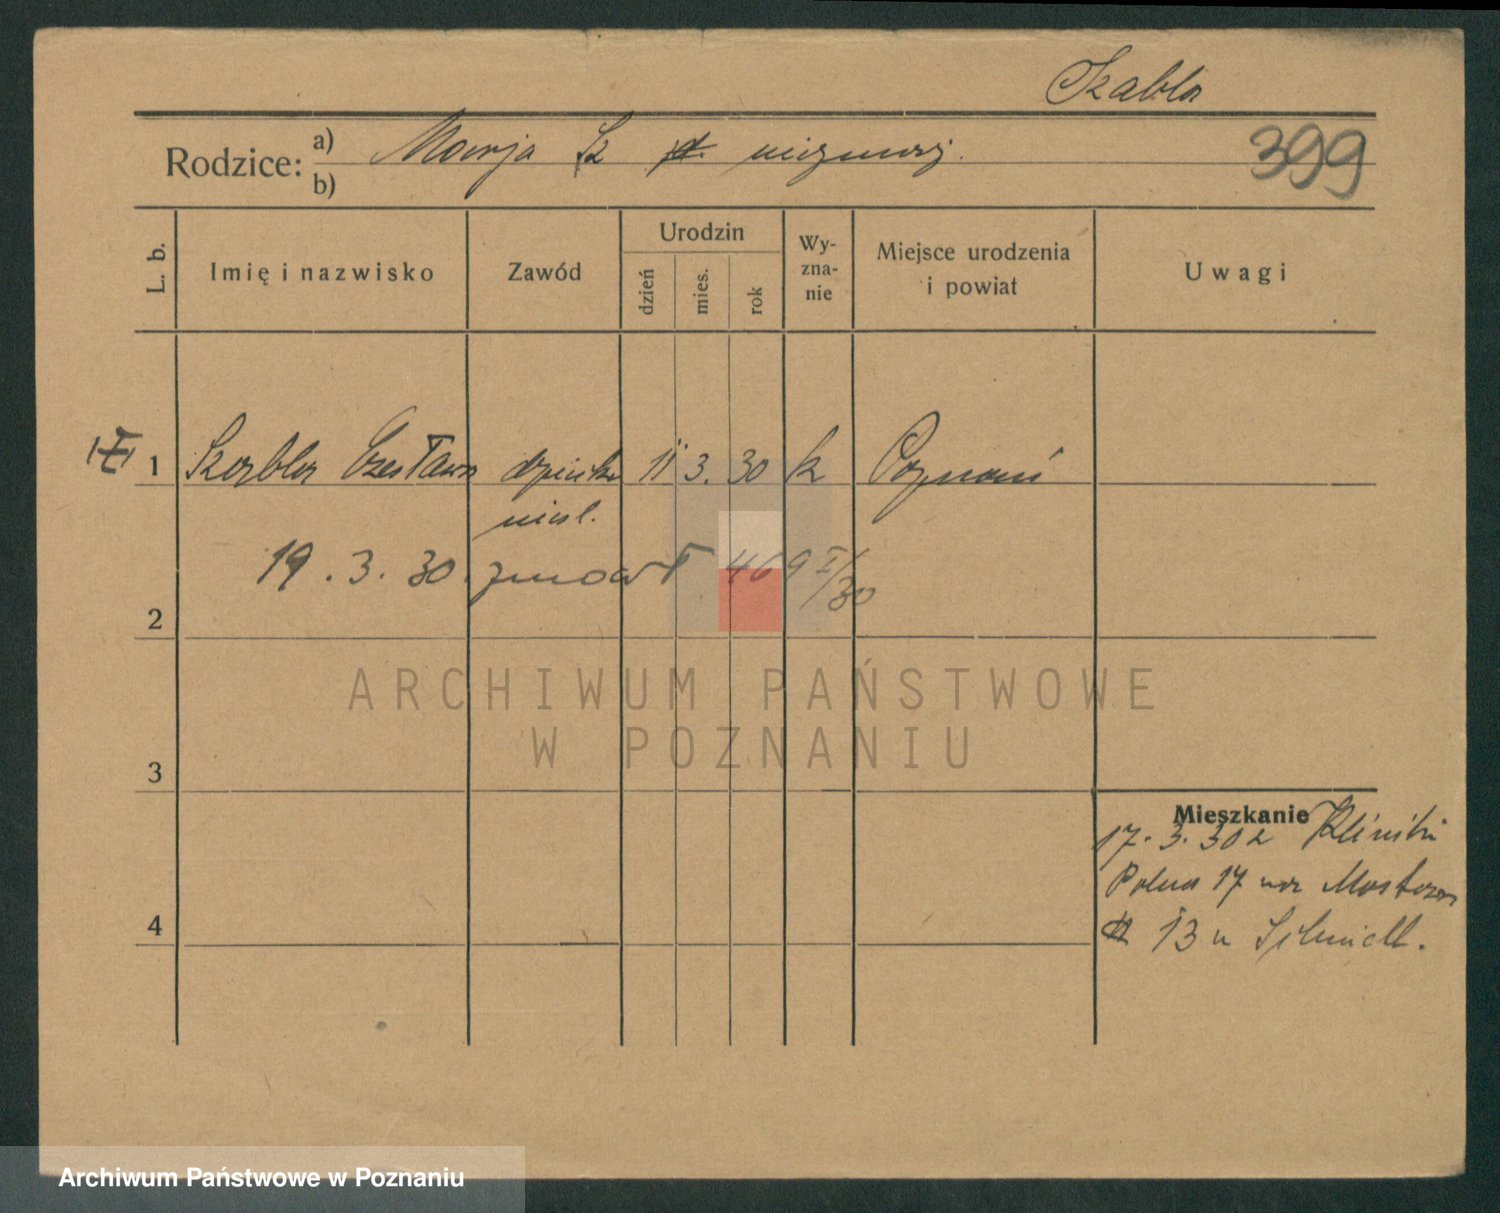 Szabla
Rodzice: a) Marja Sz niezamęż.
b)
399
L. b. Imię i nazwisko Zawód Urodzin dzień mies. rok Wyznanie Miejsce urodzenia i powiat Uwagi
1 Szabla Czesława 11 3. 30 k Poznań
19. 3. 30. zmarł 469 I/30
2
3
Mieszkanie
17. 3. 30 z Kliniki
Polna 17 na
4
13 u
ARCHIWUM PAŃSTWOWE
W POZNANIU
Archiwum Państwowe w Poznaniu